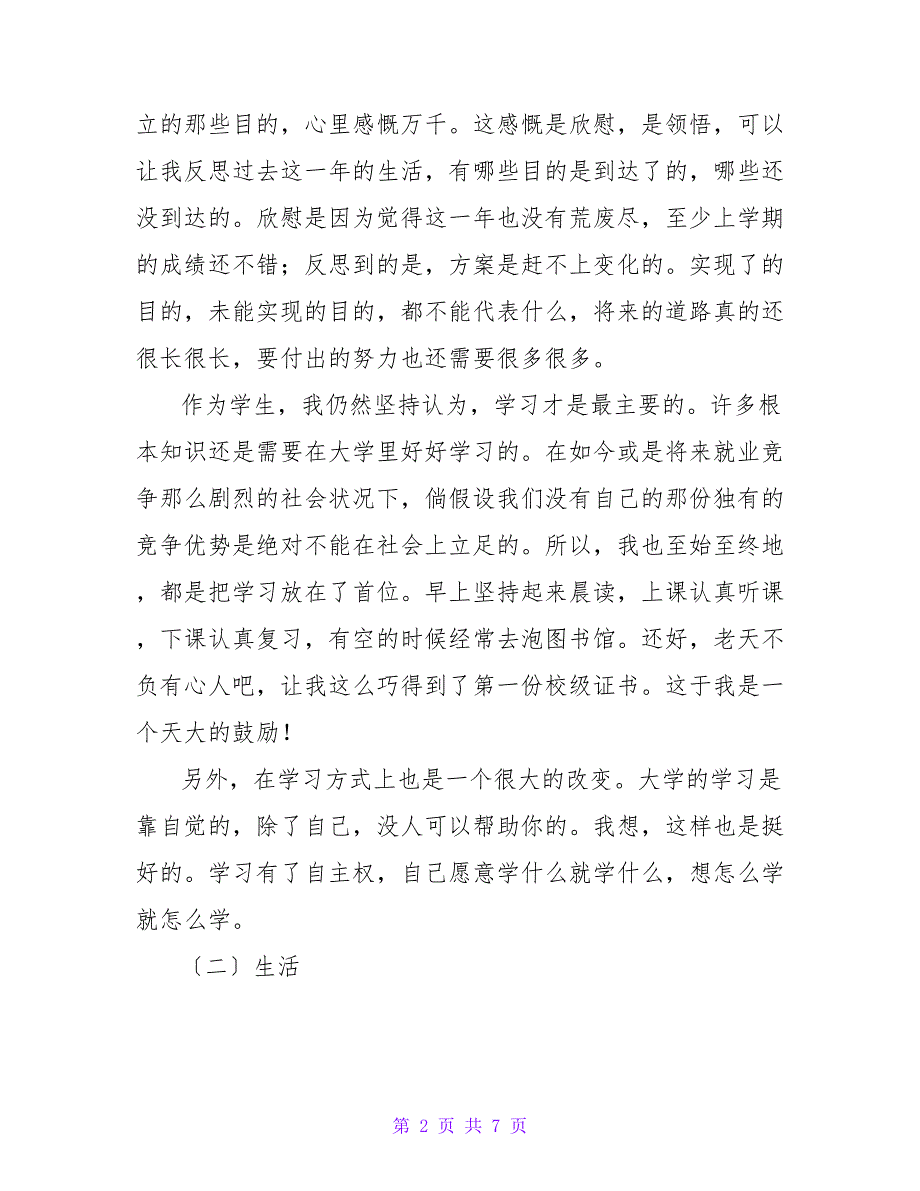 立的那些目的，心里感慨万千。这感慨是欣慰，是领悟，可以
让我反思过去这一年的生活，有哪些目的是到达了的，哪些还
没到达的。欣慰是因为觉得这一年也没有荒废尽，至少上学期
的成绩还不错；反思到的是，方案是赶不上变化的。实现了的
目的，未能实现的目的，都不能代表什么，将来的道路真的还
很长很长，要付出的努力也还需要很多很多。
作为学生，我仍然坚持认为，学习才是最主要的。许多根
本知识还是需要在大学里好好学习的。在如今或是将来就业竞
争那么剧烈的社会状况下，倘假设我们没有自己的那份独有的
竞争优势是绝对不能在社会上立足的。所以，我也至始至终地
，都是把学习放在了首位。早上坚持起来晨读，上课认真听课
，下课认真复习，有空的时候经常去泡图书馆。还好，老天不
负有心人吧，让我这么巧得到了第一份校级证书。这于我是一
个天大的鼓励！
另外，在学习方式上也是一个很大的改变。大学的学习是
靠自觉的，除了自己，没人可以帮助你的。我想，这样也是挺
好的。学习有了自主权，自己愿意学什么就学什么，想怎么学
就怎么学。
〔二〕生活
第 2 页 共 7 页